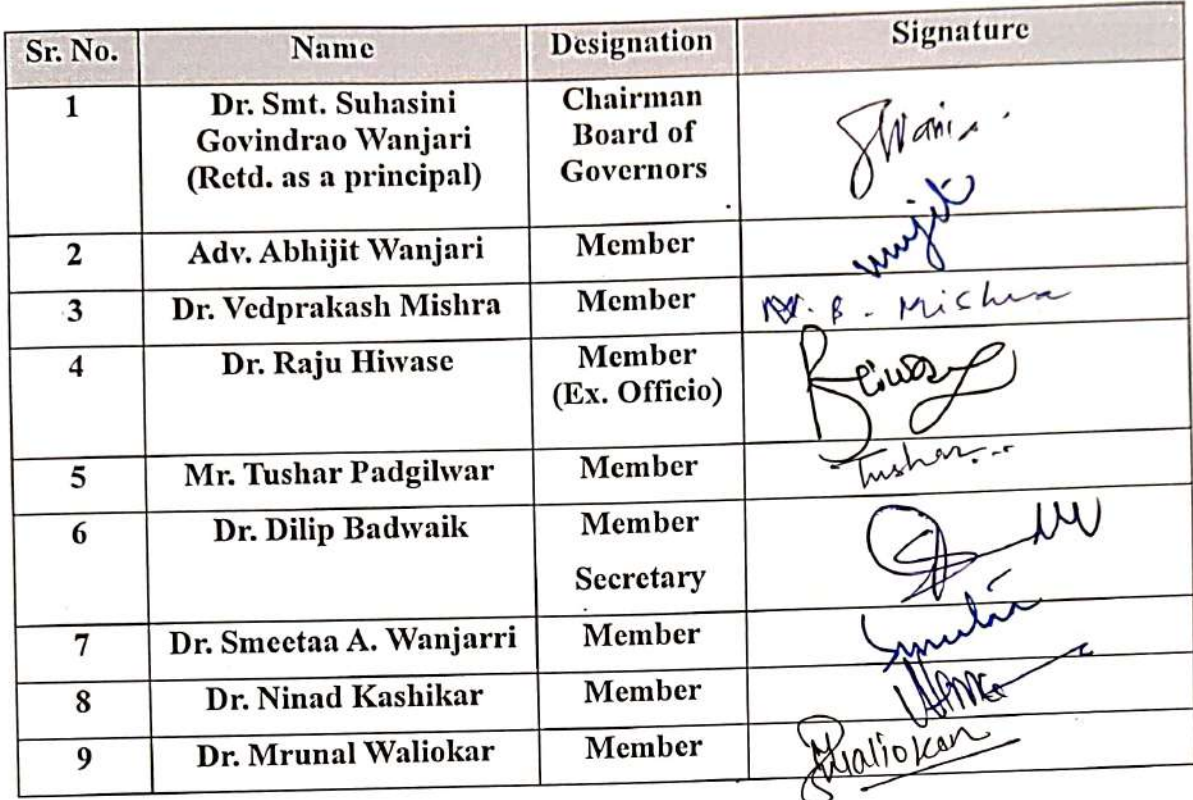 Sr. No. Name Designation Signature
1 Dr. Smt. Suhasini Chairman
Govindrao Wanjari Board of
(Retd. as a principal) Governors
2 Adv. Abhijit Wanjari Member
3 Dr. Vedprakash Mishra Member B. Mishra
4 Dr. Raju Hiwase Member
(Ex. Officio)
5 Mr. Tushar Padgilwar Member Tushar
6 Dr. Dilip Badwaik Member
Secretary
7 Dr. Smeetaa A. Wanjarri Member
8 Dr. Ninad Kashikar Member
9 Dr. Mrunal Waliokar Member Waliokar